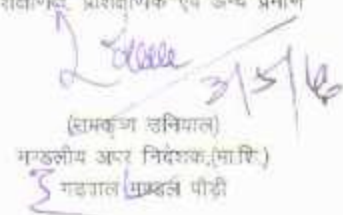 प्रशिक्षणिक एवं अन्य प्रमाण
3/5/16
(रामकृष्ण उनियाल)
मण्डलीय अपर निदेशक,(मा.शि.)
गढ़वाल मण्डल पौड़ी